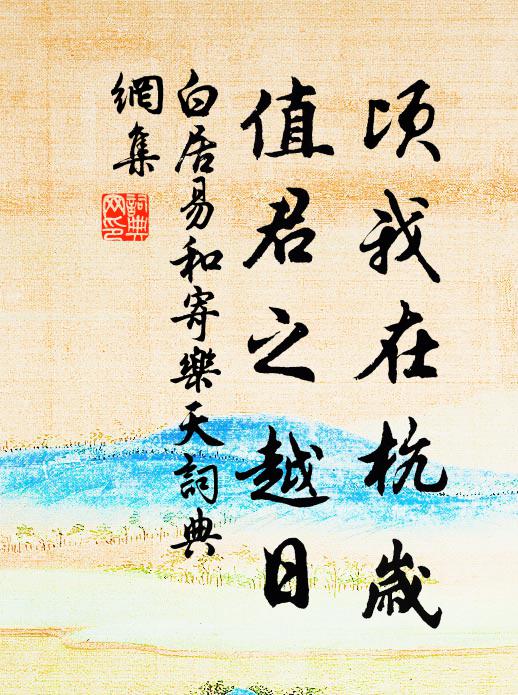 頃我在杭歲
值君之越日
白居易和寄樂天詞典
網集
詞典
网印